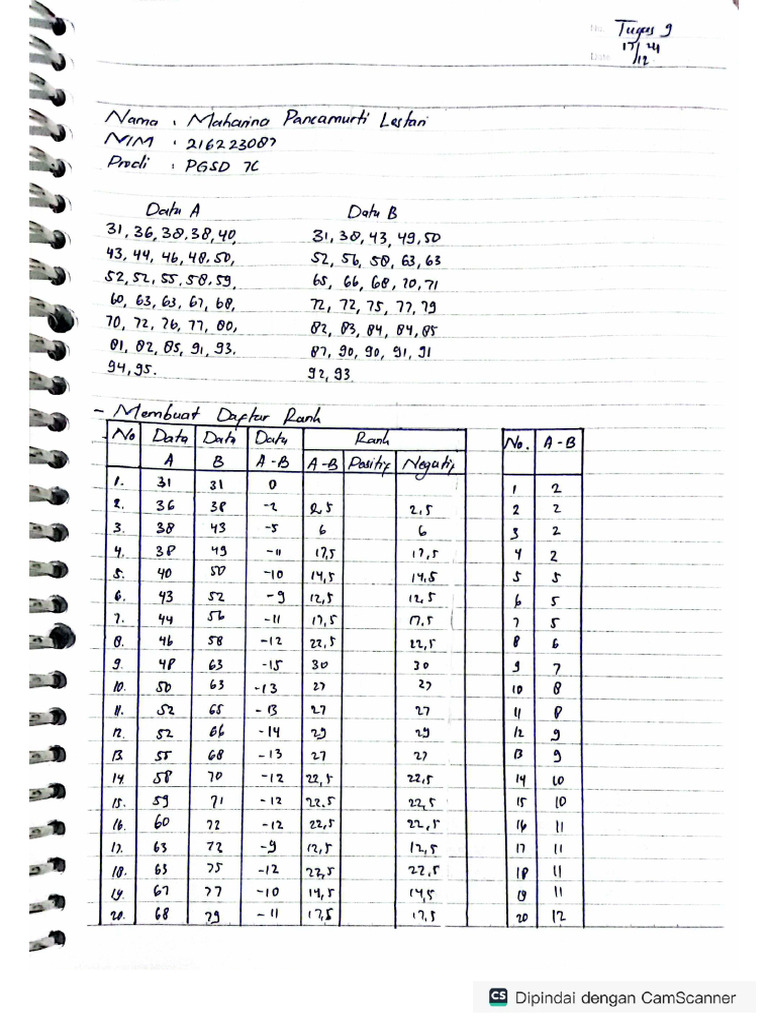 No. Tugas 9
Date 17/12 24
Nama : Maharina Pancamurti Lestari
NIM : 216223087
Prodi : PGSD 7C
Data A Data B
31, 36, 38, 38, 40, 31, 38, 43, 49, 50
43, 44, 46, 48, 50, 52, 56, 58, 63, 63
52, 52, 55, 58, 59, 65, 66, 68, 70, 71
60, 63, 63, 67, 68, 72, 72, 75, 77, 79
70, 72, 76, 77, 80, 82, 83, 84, 84, 85
81, 82, 85, 91, 93. 87, 90, 90, 91, 91
94, 95. 92, 93
- Membuat Daftar Rank
No Data Data Data Rank No. A-B
A B A-B A-B Positif Negatif
1. 31 31 0 1 2
2. 36 38 -2 2,5 2,5 2 2
3. 38 43 -5 6 6 3 2
4. 38 49 -11 17,5 17,5 4 2
5. 40 50 -10 14,5 14,5 5 5
6. 43 52 -9 12,5 12,5 6 5
7. 44 56 -11 17,5 17,5 7 5
8. 46 58 -12 22,5 22,5 8 6
9. 48 63 -15 30 30 9 7
10. 50 63 -13 27 27 10 8
11. 52 65 -13 27 27 11 8
12. 52 66 -14 29 29 12 9
13. 55 68 -13 27 27 13 9
14. 58 70 -12 22,5 22,5 14 10
15. 59 71 -12 22,5 22,5 15 10
16. 60 72 -12 22,5 22,5 16 11
17. 63 72 -9 12,5 12,5 17 11
18. 63 75 -12 22,5 22,5 18 11
19. 67 77 -10 14,5 14,5 19 11
20. 68 79 -11 17,5 17,5 20 12
CS Dipindai dengan CamScanner